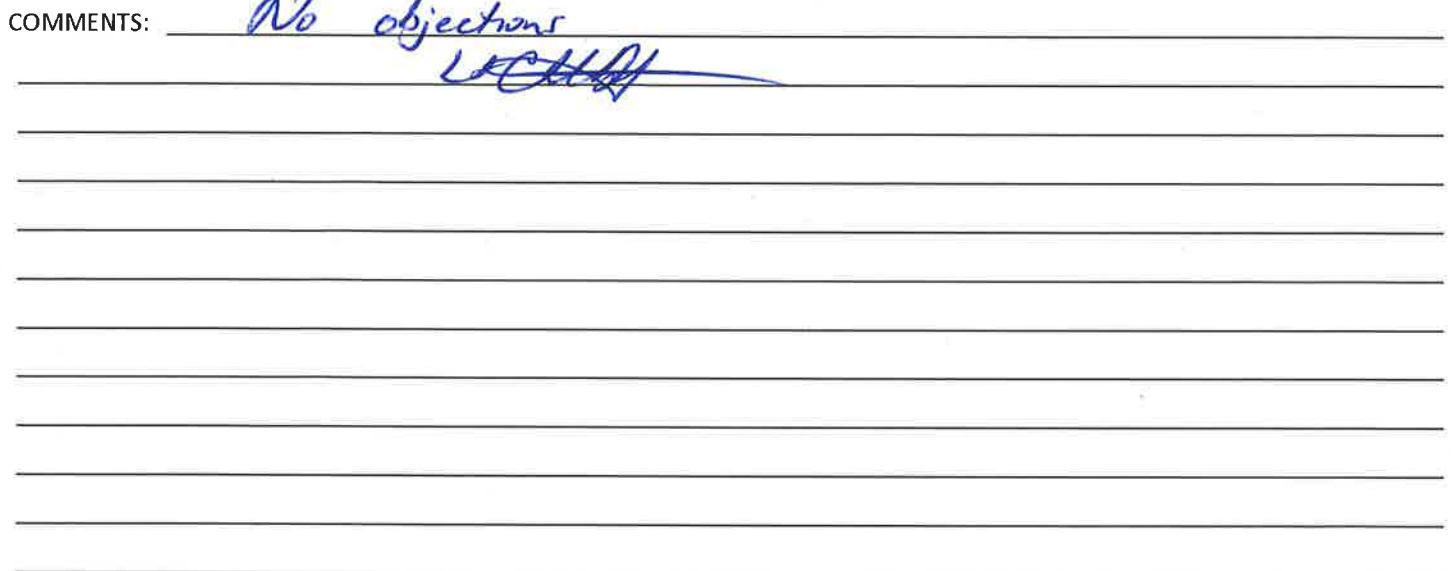 COMMENTS: No objections